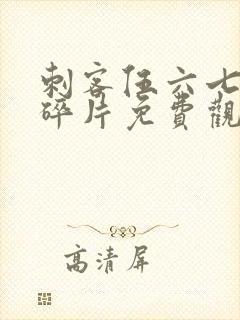 刺客伍六七
碎片免費觀
高清屏